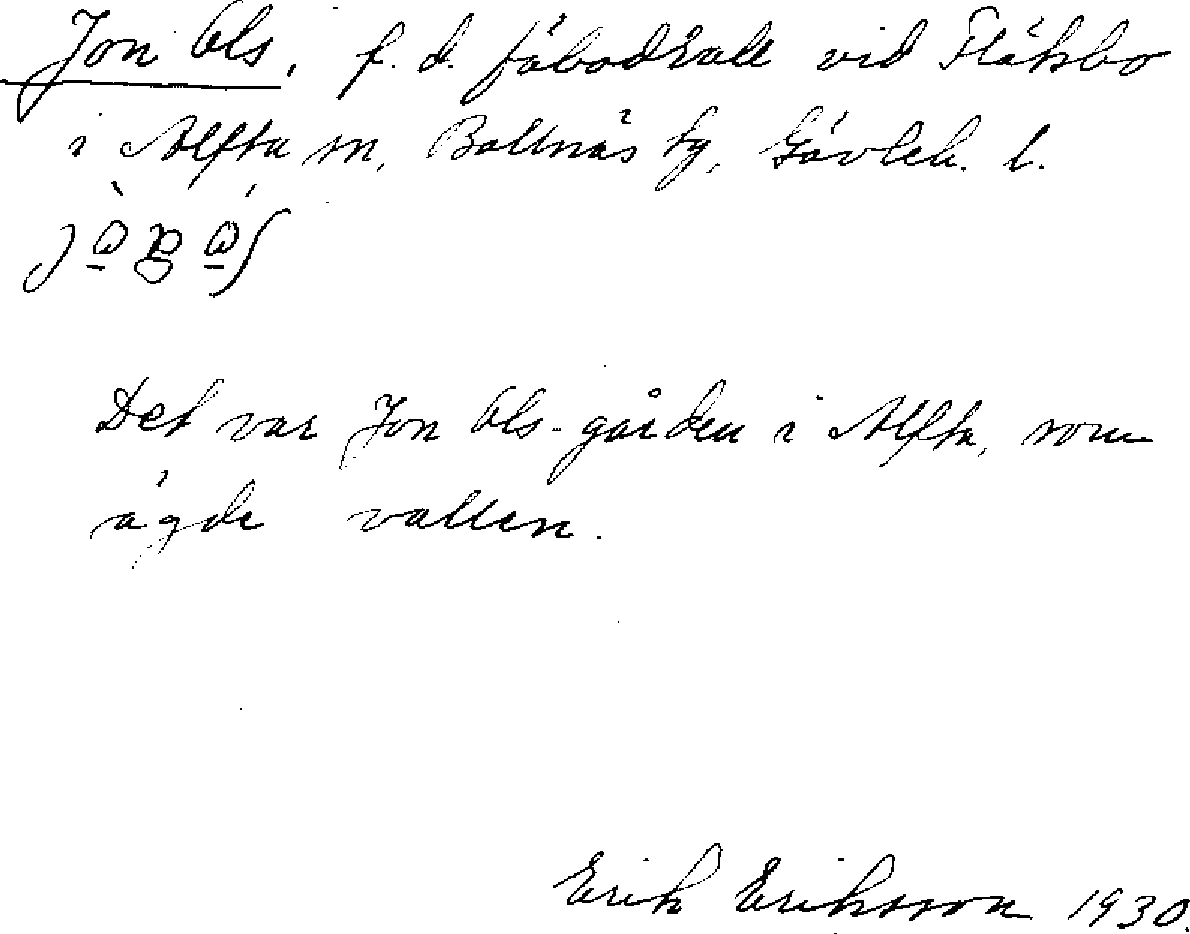 Jon Ols, f. d. fäbodvall vid Fläksbo
i Alfta sn, Bollnäs tg, Gävleb. l.
Det var Jon Ols-gården i Alfta, som
ägde vallen.
Erik Eriksson 1930.